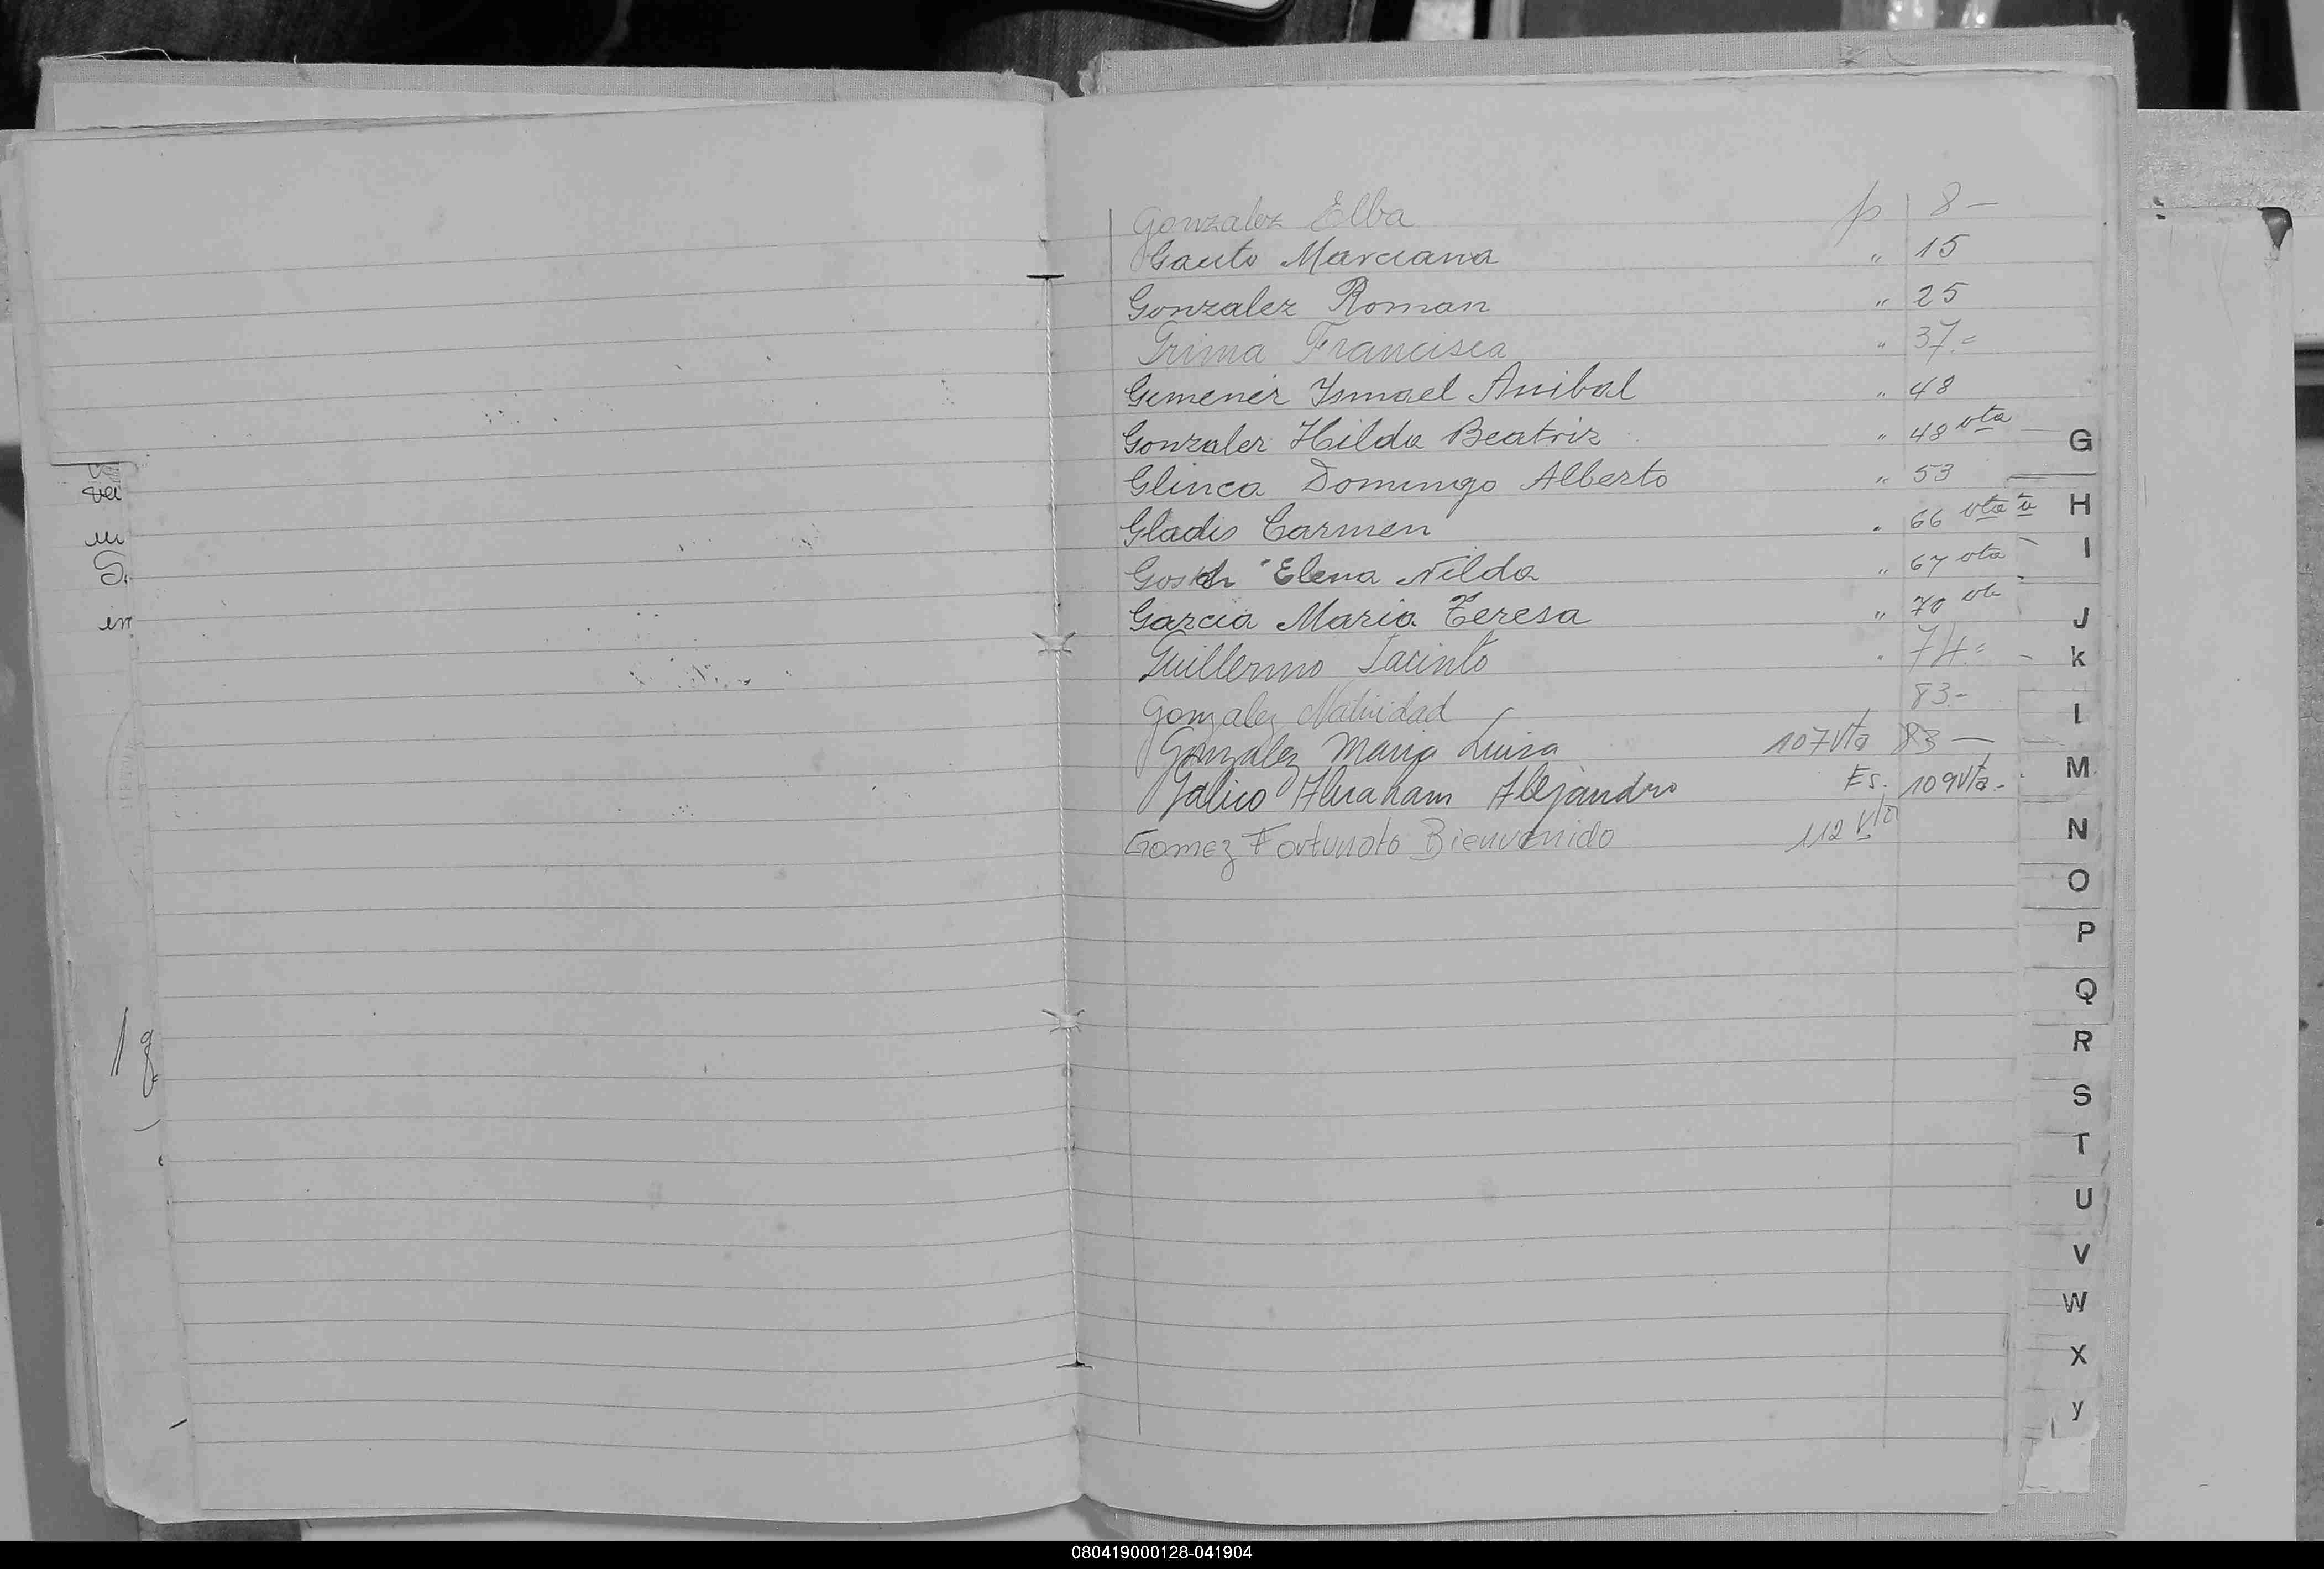 Gonzalez Elba p 8 -
Gauto Marciana " 15
Gonzalez Roman " 25
Grima Francisca " 37.=
Gimenez Ismael Anibal " 48
Gonzalez Hilda Beatriz " 48 vta
Glinca Domingo Alberto " 53
Gladis Carmen " 66 vta
Elena Nilda " 67 vta
Garcia Maria Teresa " 70 vta
Guillermo Jacinto " 74.=
Gonzalez Natividad 83.-
Gonzalez Maria Luisa 107 Vta 83 -
Galico Abraham Alejandro Es. 109 Vta.-
Gomez Fortunato Bienvenido 112 Vta
G
H
I
J
k
l
M
N
O
P
Q
R
S
T
U
V
W
X
y
080419000128-041904